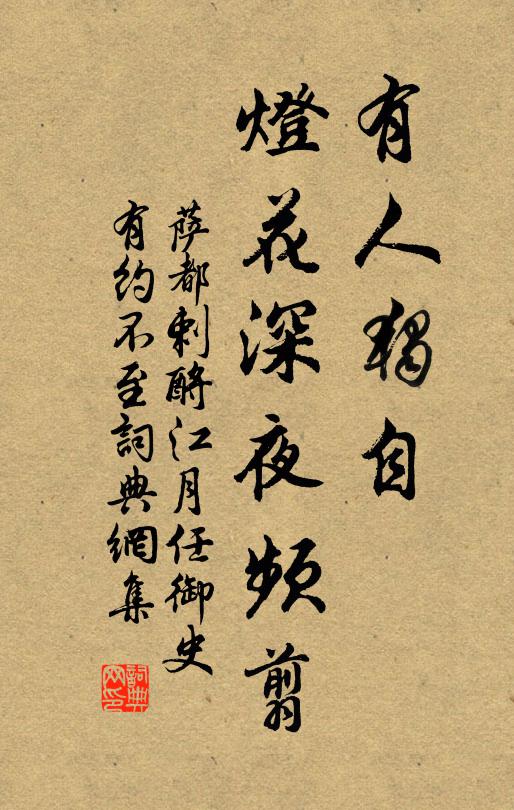 有人獨自
燈花深夜頻剪
薩都剌酹江月任御史
有約不至詞典網集
詞典
网印